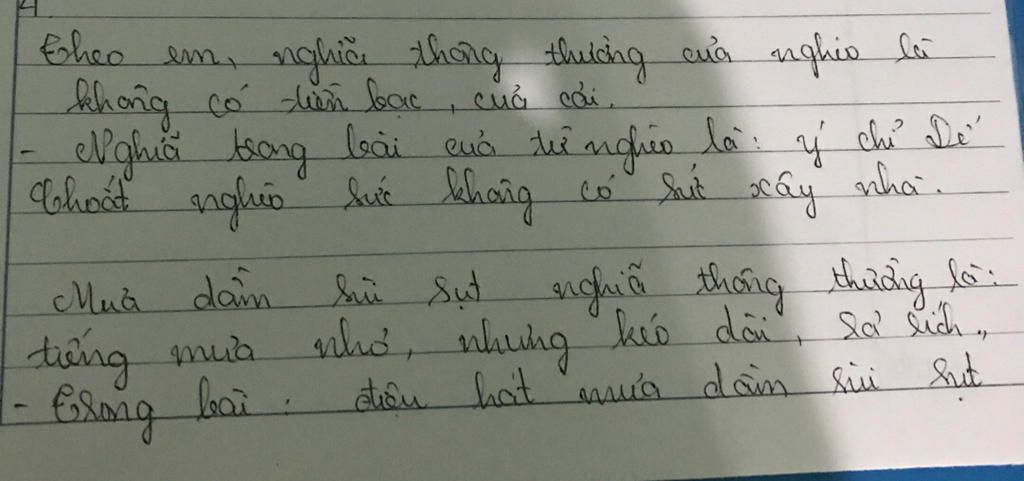 4
Theo em, nghiã thông thường của nghèo là
không có tiền bạc, của cải.
- Nghiã trong bài của từ nghèo là: ý chỉ Dế
Choắt nghèo sức không có sức xây nhà.
Mưa dầm sùi sụt nghiã thông thường là:
tiếng mưa nhỏ, nhưng kéo dài, rả rích,,
- Trong bài: điệu hát mưa dầm sùi sụt